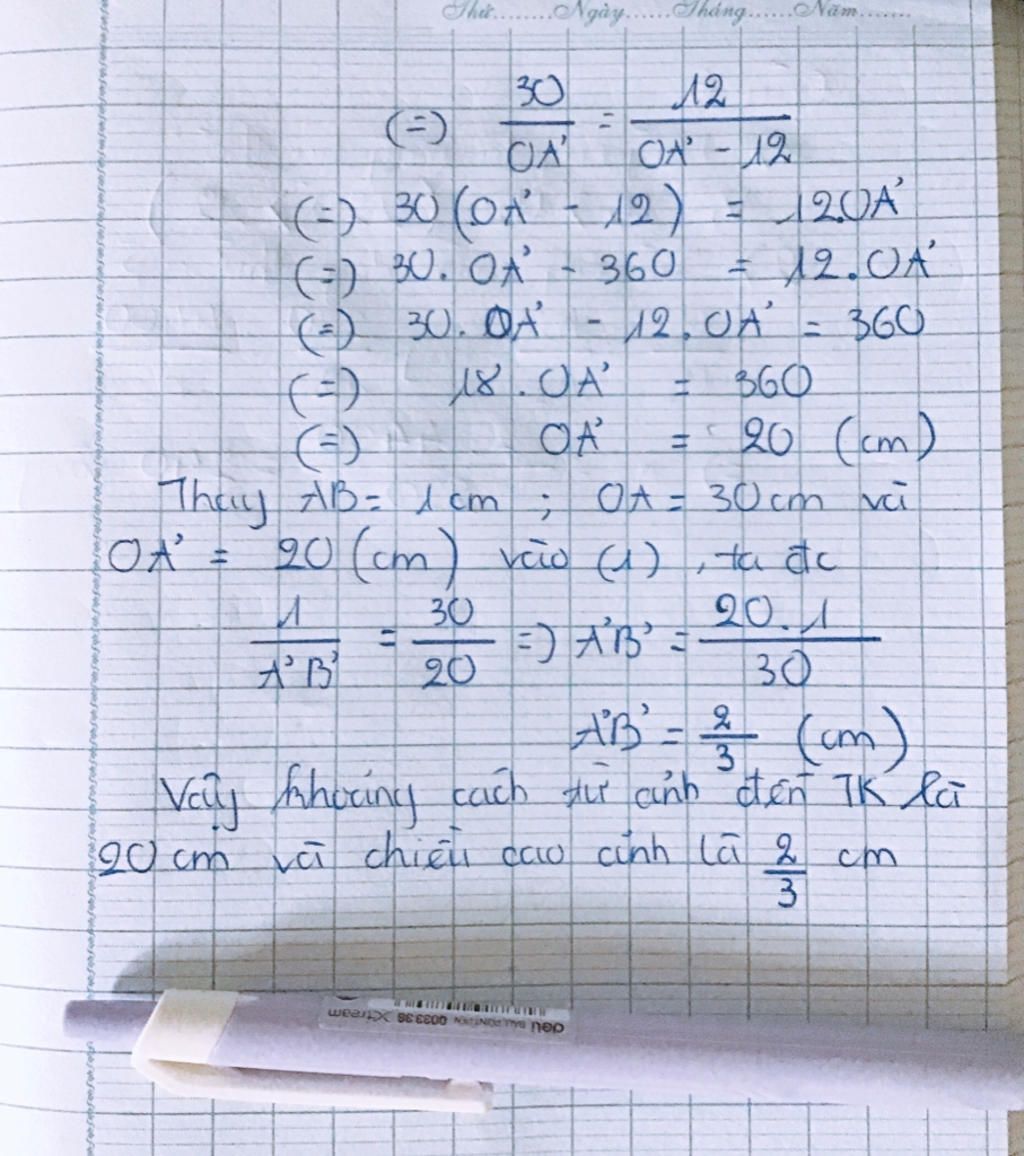 Thứ........Ngày......Tháng......Năm.......
(=) 30/OA' = 12/OA' - 12
(=) 30(OA' - 12) = 12.OA'
(=) 30. OA' - 360 = 12.OA'
(=) 30. OA' - 12.OA' = 360
(=) 18.OA' = 360
(=) OA' = 20 (cm)
Thay AB = 1cm ; OA = 30cm và
OA' = 20 (cm) vào (1), ta đc
1/A'B' = 30/20 =) A'B' = 20.1/30
A'B' = 2/3 (cm)
Vậy khoảng cách từ ảnh đến TK là
20 cm và chiều cao ảnh là 2/3 cm
deli BALL POINT PEN 003336 Xtream